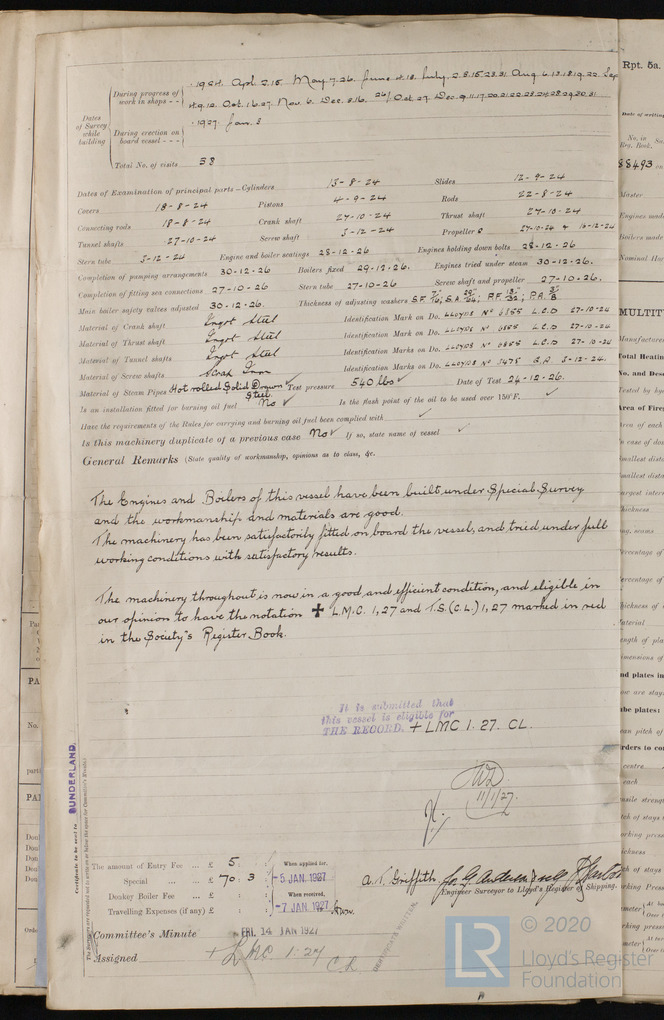 Rpt. 5a.
During progress of work in shops - - 1924. Apl. 2.15. May 7.26. June 4.18. July 2.8.15.23.31 Aug 6.13.18.19.22. Sep
4.9.12. Oct. 1.6.27. Nov. 6. Dec. 8.16. Oct. 27. Dec. 9.11.17.20.21.22.23.24.28.29.30.31
Dates of Survey while building
During erection on board vessel - - - 1927. Jan. 3
Total No. of visits 58
Dates of Examination of principal parts—Cylinders 13-8-24 Slides 12-9-24
Covers 18-8-24 Pistons 4-9-24 Rods 22-8-24
Connecting rods 18-8-24 Crank shaft 27-10-24 Thrust shaft 27-10-24
Tunnel shafts 27-10-24 Screw shaft 3-12-24 Propellers 27-10-24 & 16-12-24
Stern tube 3-12-24 Engine and boiler seatings 28-12-26 Engines holding down bolts 28-12-26
Completion of pumping arrangements 30-12-26 Boilers fixed 29-12-26. Engines tried under steam 30-12-26.
Completion of fitting sea connections 27-10-26 Stern tube 27-10-26 Screw shaft and propeller 27-10-26.
Main boiler safety valves adjusted 30-12-26. Thickness of adjusting washers
Material of Crank shaft Ingot Steel Identification Mark on Do. LLOYDS No 6855 L.C.D 27-10-24
Material of Thrust shaft Ingot Steel Identification Mark on Do. LLOYDS No 6855 L.C.D 27-10-24
Material of Tunnel shafts Ingot Steel Identification Marks on Do. LLOYDS No 6855 L.C.D 27-10-24
Material of Screw shafts Scrap Iron Identification Marks on Do. LLOYDS No 5475 3-12-24.
Material of Steam Pipes Hot rolled Solid Drawn Steel ✓ Test pressure 540 lbs ✓ Date of Test 24-12-26.
Is an installation fitted for burning oil fuel No ✓ Is the flash point of the oil to be used over 150°F. ✓
Have the requirements of the Rules for carrying and burning oil fuel been complied with ✓
Is this machinery duplicate of a previous case No ✓ If so, state name of vessel ✓
General Remarks (State quality of workmanship, opinions as to class, &c.
The Engines and Boilers of this vessel have been built under Special Survey
and the workmanship and materials are good.
The machinery has been satisfactorily fitted on board the vessel, and tried under full
working conditions with satisfactory results.
The machinery throughout is now in a good and efficient condition, and eligible in
our opinion to have the notation ✚ L.M.C. 1,27 and T.S.(C.L.) 1,27 marked in red
in the Society's Register Book.
It is submitted that
this vessel is eligible for
THE RECORD. + LMC 1.27. CL.
11/1/27.
SUNDERLAND.
Certificate to be sent to
The amount of Entry Fee ... £ 5 : : When applied for,
Special ... £ 70 : 3 : -5 JAN. 1927
Donkey Boiler Fee ... £ : : When received,
Travelling Expenses (if any) £ : : -7 JAN 1927
A. T. Griffith
Engineer Surveyor to Lloyd's Register of Shipping.
Committee's Minute FRI. 14 JAN 1927
Assigned + LMC 1.27 CL
© 2020
LR
Lloyd's Register
Foundation